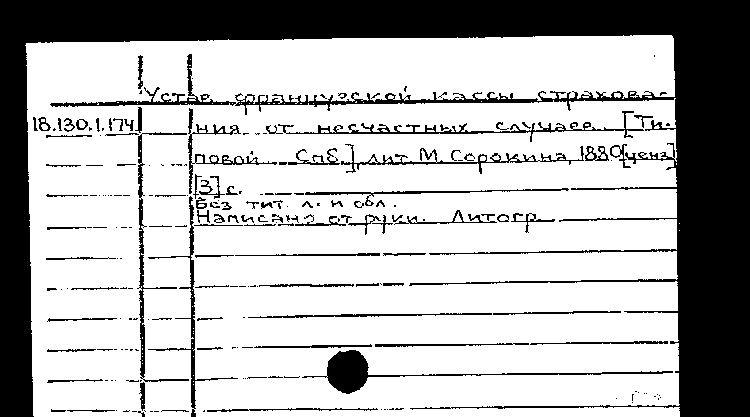 Устав французской кассы страхова-
18.130.1.174 ния от несчастных случаев. [Ти-
повой. Спб.], лит. М. Сорокина, 1880 [ценз]
[3] с.
Без тит. л. и обл.
Написано от руки. Литогр.